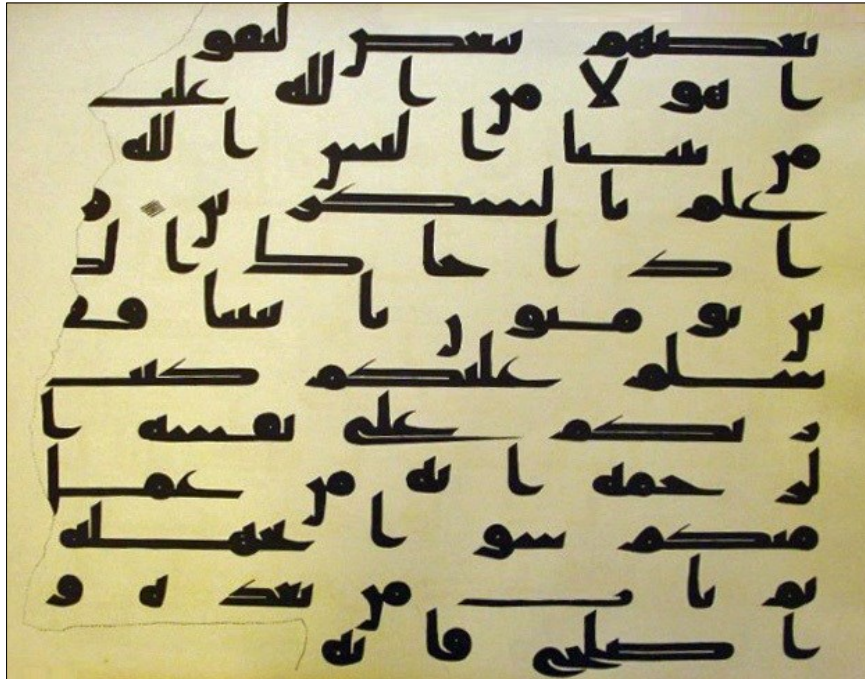 بعضهم ببعض ليقو
ا هولا من الله علي
من بيننا اليس الله
علم بالشكرين و
اذا جاك الذ
ين يومنون بايتنا فق
سلم عليكم كتب
ربكم على نفسه ا
لرحمة انه من عمل
منكم سوا بجهلة
ثم تاب من بعده و
اصلح فانه